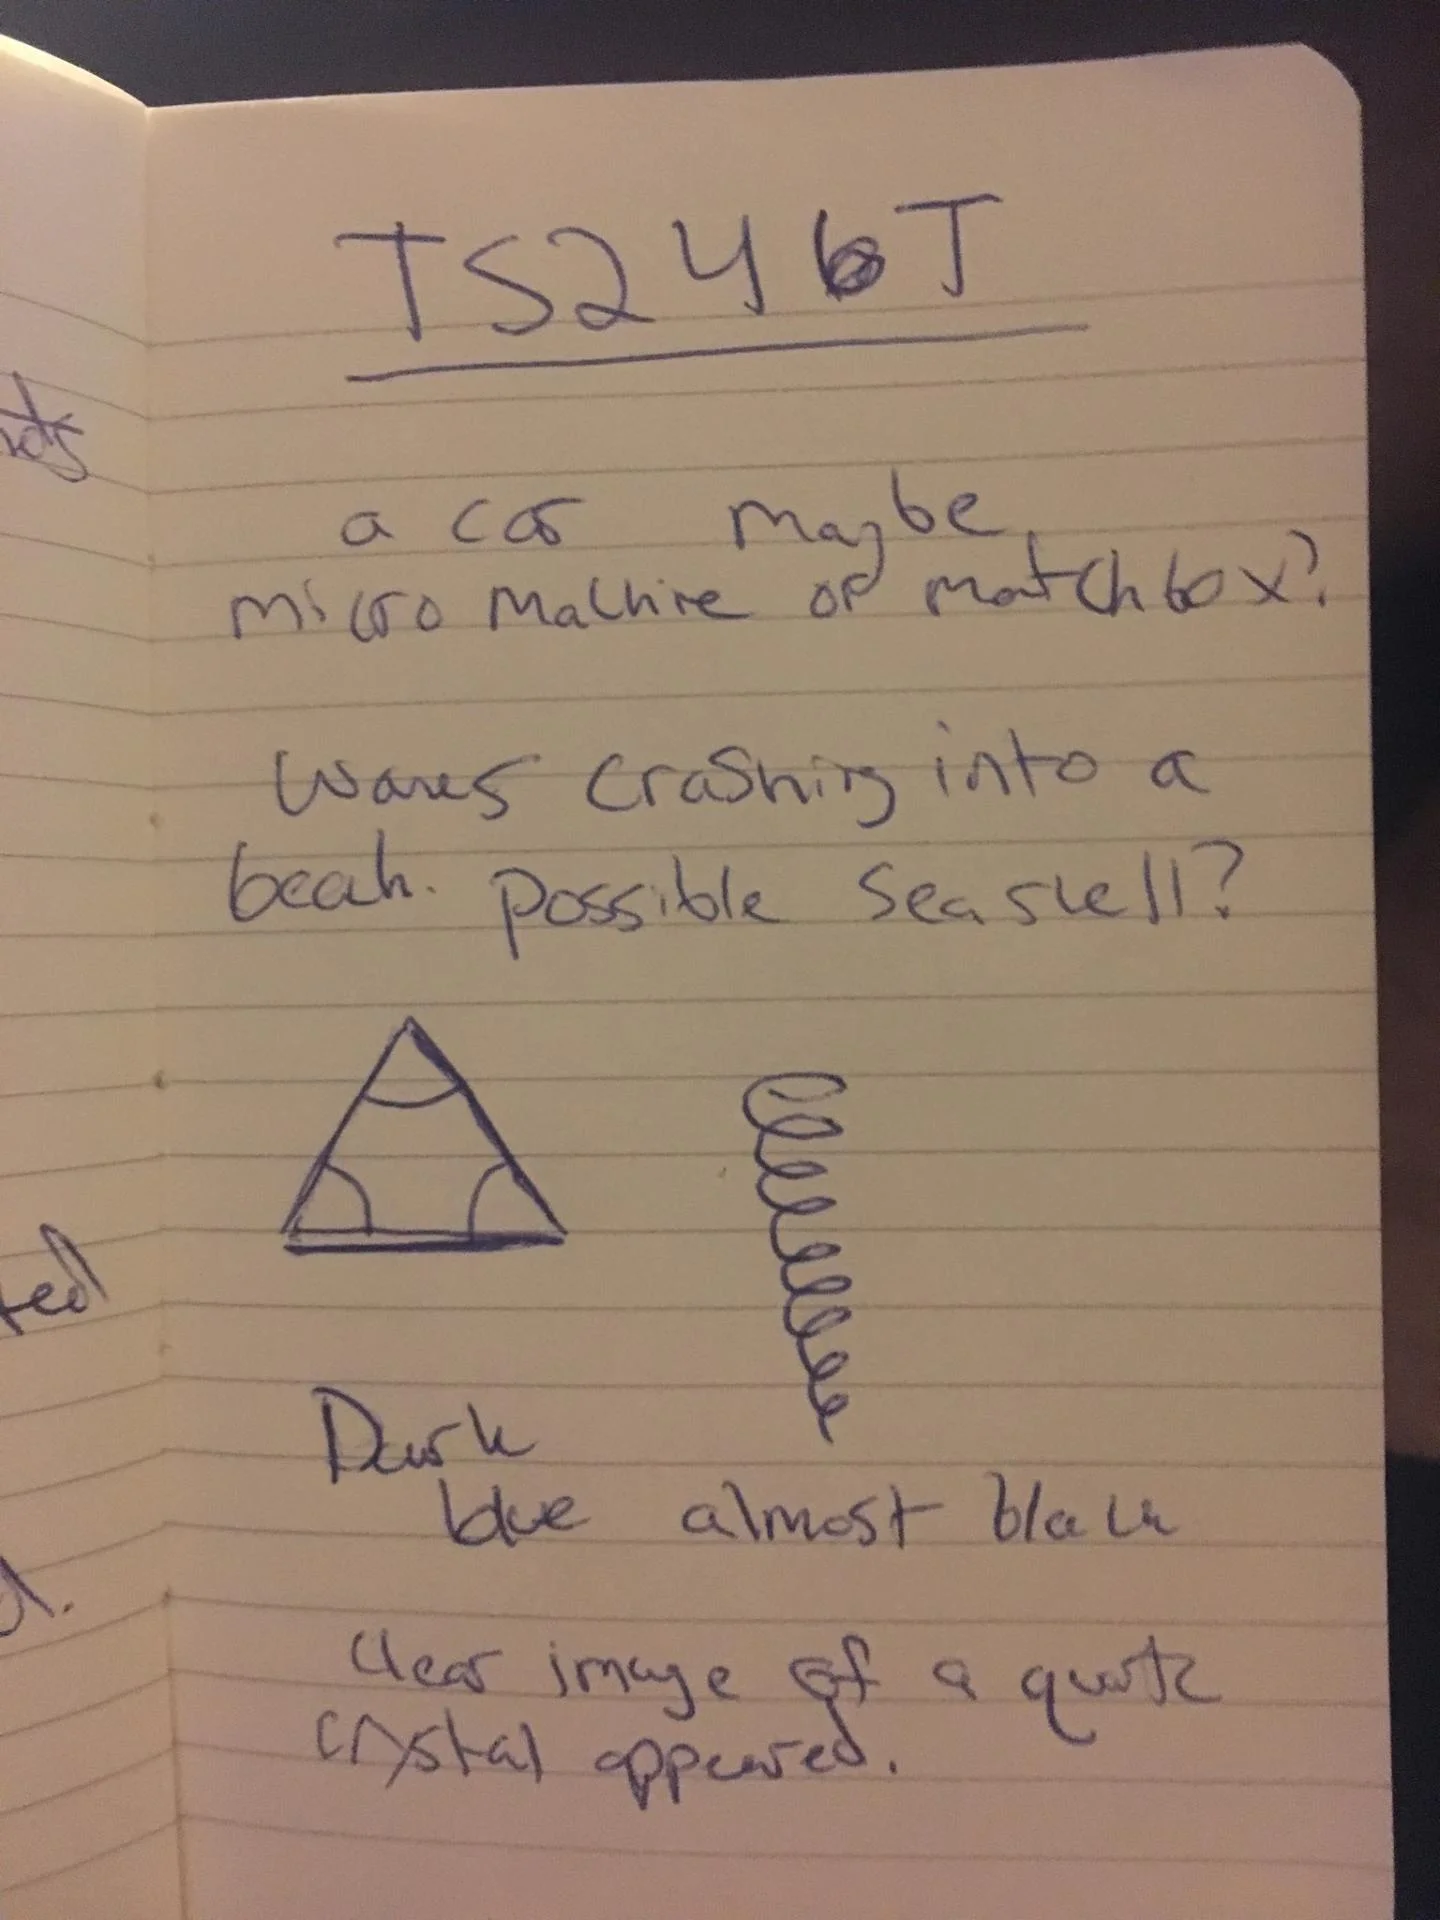 TS246T
a car maybe
micro machine or matchbox?
waves crashing into a
beach. possible seashell?
Dark
blue almost black
clear image of a quartz
crystal appeared.